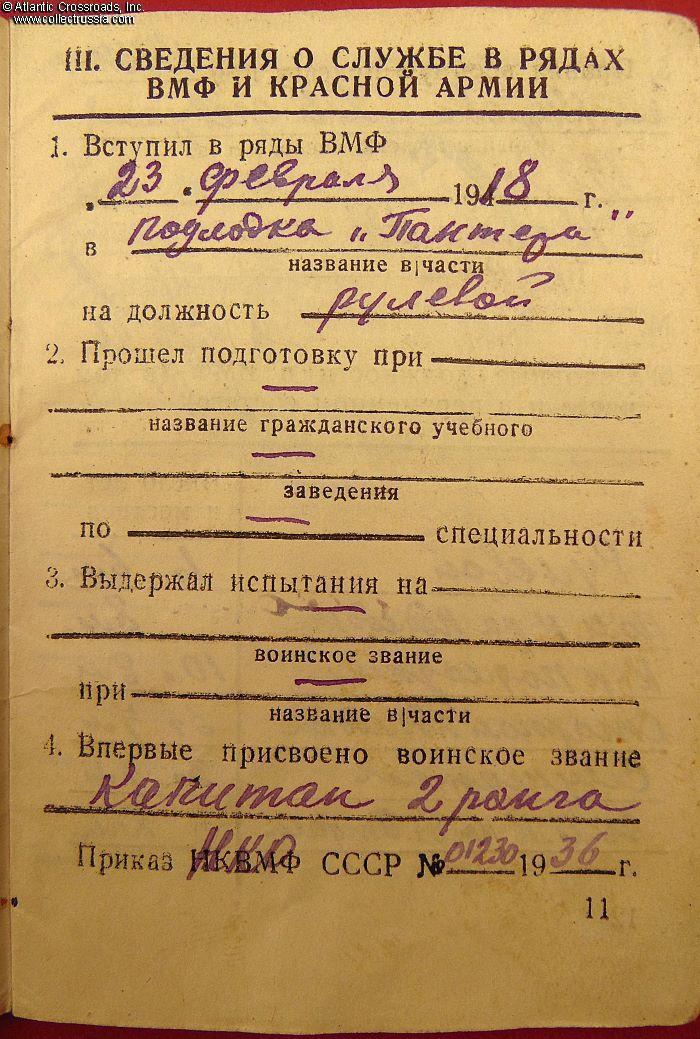 © Atlantic Crossroads, Inc.
www.collectrussia.com
III. СВЕДЕНИЯ О СЛУЖБЕ В РЯДАХ
ВМФ И КРАСНОЙ АРМИИ
1. Вступил в ряды ВМФ
„23 " февраля 1918 г.
в подлодка „Пантера"
название в|части
на должность рулевой
2. Прошел подготовку при
—
название гражданского учебного
—
заведения
—
по специальности
3. Выдержал испытания на
—
воинское звание
—
при
название в|части
4. Впервые присвоено воинское звание
Капитан 2 ранга
Приказ НКВМФ СССР № 01230 1936 г.
11